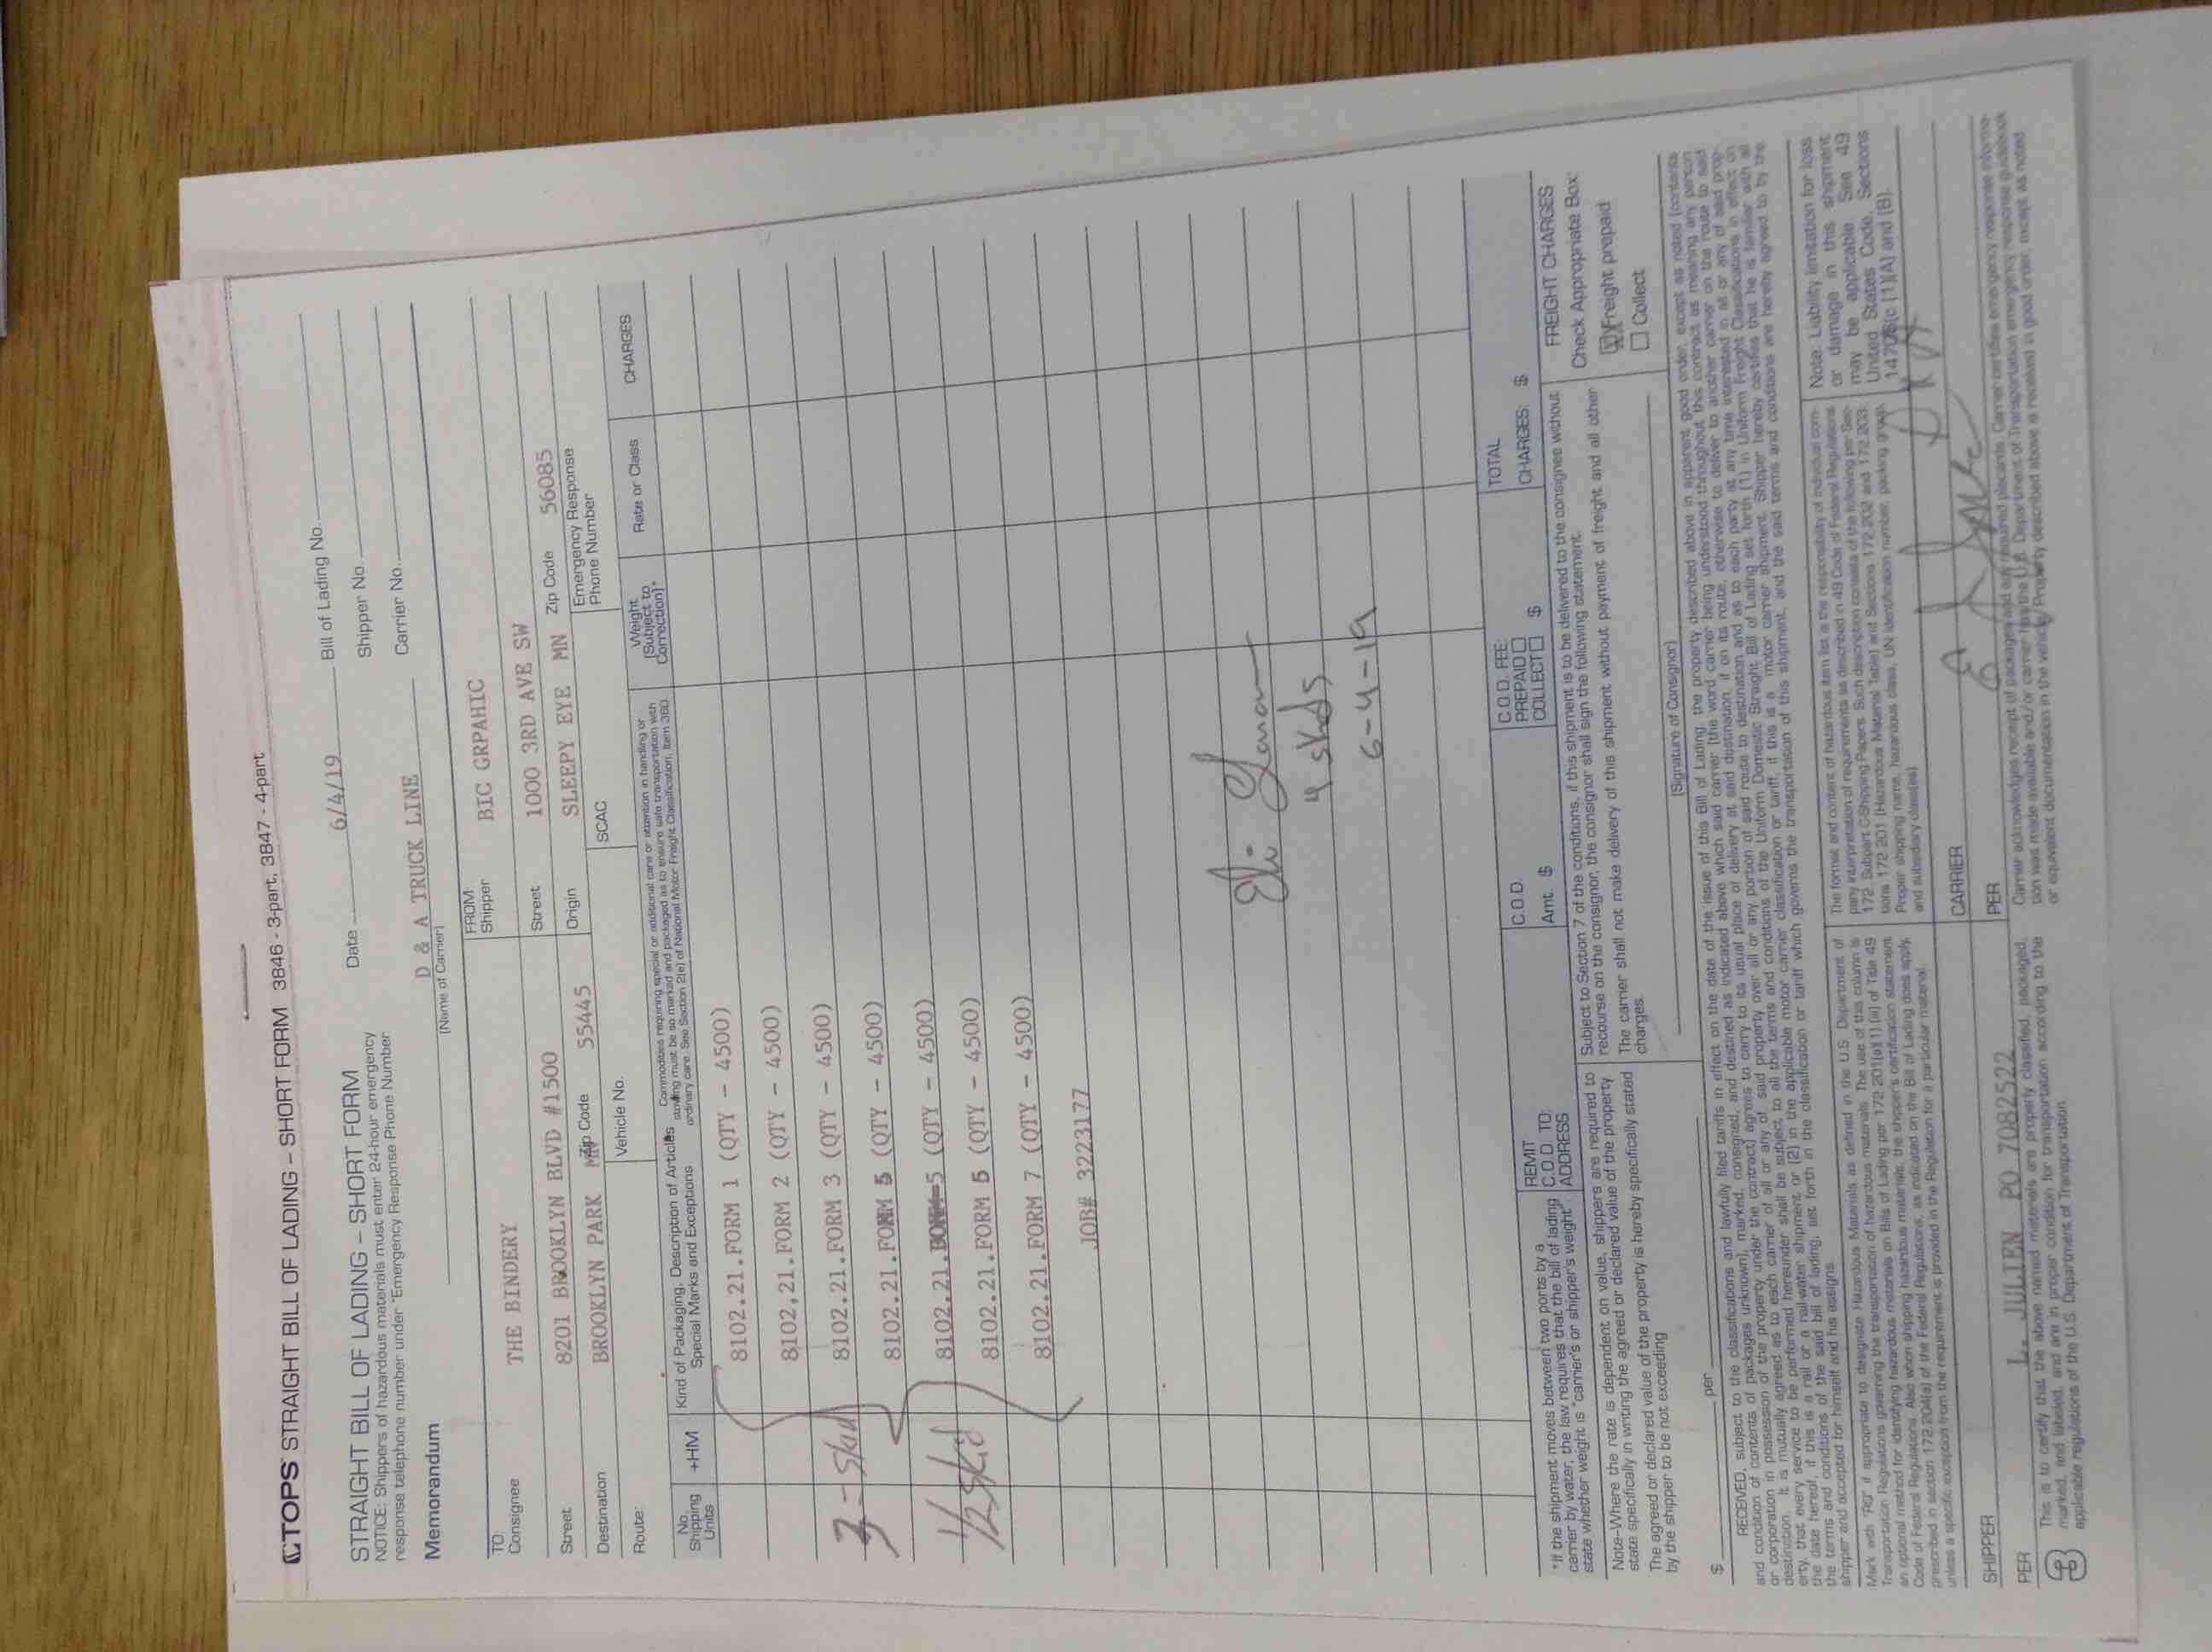 TOPS STRAIGHT BILL OF LADING – SHORT FORM 3846 - 3-part, 3847 - 4-part
STRAIGHT BILL OF LADING – SHORT FORM
NOTICE: Shippers of hazardous materials must enter 24-hour emergency
response telephone number under "Emergency Response Phone Number
Date 6/4/19 Bill of Lading No.
Shipper No.
Carrier No.
Memorandum
D & A TRUCK LINE
(Name of Carrier)
TO:
Consignee THE BINDERY
FROM:
Shipper BIC GRPAHIC
Street 8201 BROOKLYN BLVD #1500
Street 1000 3RD AVE SW
Destination BROOKLYN PARK MN Zip Code 55445
Origin SLEEPY EYE MN Zip Code 56085
Route:
Vehicle No.
SCAC
Emergency Response
Phone Number
No.
Shipping
Units
+HM
Kind of Packaging, Description of Articles
Special Marks and Exceptions
Commodities requiring special or additional care or attention in handling or
stowing must be so marked and packaged as to ensure safe transportation with
ordinary care. See Section 2(e) of National Motor Freight Classification, Item 360
Weight
(Subject to
Correction)*
Rate or Class
CHARGES
8102.21.FORM 1 (QTY - 4500)
8102,21.FORM 2 (QTY - 4500)
3 - Skid 8102.21.FORM 3 (QTY - 4500)
8102.21.FORM 5 (QTY - 4500)
1/2 skid 8102.21. 5 (QTY - 4500)
8102.21.FORM 5 (QTY - 4500)
8102.21.FORM 7 (QTY - 4500)
JOB# 3223177
Eli
4 skds
6-4-19
REMIT
C.O.D. TO:
ADDRESS
C.O.D.
Amt. $
C.O.D. FEE:
PREPAID
COLLECT $
TOTAL
CHARGES: $
*If the shipment moves between two ports by a
carrier by water, the law requires that the bill of lading
state whether weight is "carrier's or shipper's weight"
Note–Where the rate is dependent on value, shippers are required to
state specifically in writing the agreed or declared value of the property
The agreed or declared value of the property is hereby specifically stated
by the shipper to be not exceeding
$ per
Subject to Section 7 of the conditions, if this shipment is to be delivered to the consignee without
recourse on the consignor, the consignor shall sign the following statement.
The carrier shall not make delivery of this shipment without payment of freight and all other
charges.
(Signature of Consignor)
FREIGHT CHARGES
Check Appropriate Box:
Freight prepaid
Collect
RECEIVED, subject to the classifications and lawfully filed tariffs in effect on the date of the issue of this Bill of Lading, the property described above in apparent good order, except as noted (contents
and condition of contents of packages unknown), marked, consigned, and destined as indicated above which said carrier (the word carrier being understood throughout this contract as meaning any person
or corporation in possession of the property under the contract) agrees to carry to its usual place of delivery at said destination, if on its route, otherwise to deliver to another carrier on the route to said
destination. It is mutually agreed as to each carrier of all or any of, said property over all or any portion of said route to destination and as to each party at any time interested in all or any of said prop-
erty, that every service to be performed hereunder shall be subject to all the terms and conditions of the Uniform Domestic Straight Bill of Lading set forth (1) in Uniform Freight Classifications in effect on
the date hereof, if this is a rail or a rail-water shipment, or (2) in the applicable motor carrier classification or tariff, if this is a motor carrier shipment. Shipper hereby certifies that he is familiar with all
the terms and conditions of the said bill of lading, set forth in the classification or tariff which governs the transportation of this shipment, and the said terms and conditions are hereby agreed to by the
shipper and accepted for himself and his assigns.
Mark with "RQ" if appropriate to designate Hazardous Materials as defined in the U.S. Department of
Transportation Regulations governing the transportation of hazardous materials. The use of this column is
an optional method for identifying hazardous materials on Bills of Lading per 172.201(a)(1)(iii) of Title 49
Code of Federal Regulations. Also when shipping hazardous materials, the shipper's certification statement
prescribed in section 172.204(a) of the Federal Regulations, as indicated on the Bill of Lading does apply,
unless a specific exception from the requirement is provided in the Regulation for a particular material.
The format and content of hazardous item list is the responsibility of individual com-
pany interpretation of requirements as described in 49 Code of Federal Regulations
172, Subpart C-Shipping Papers. Such description consists of the following per Sec-
tions 172.201 (Hazardous Material Table) and Sections 172.202 and 172.203:
Proper shipping name, hazardous class, UN identification number, packing group,
and subsidiary class(es).
Note: Liability limitation for loss
or damage in this shipment
may be applicable. See 49
United States Code, Sections
14706(c)(1)(A) and (B).
SHIPPER
CARRIER
PER L. JULIEN PO 7082522
PER
This is to certify that the above named materials are properly classified, packaged,
marked, and labeled, and are in proper condition for transportation according to the
applicable regulations of the U.S. Department of Transportation
Carrier acknowledges receipt of packages and any required placards. Carrier certifies emergency response informa-
tion was made available and/or carrier has the U.S. Department of Transportation emergency response guidebook
or equivalent documentation in the vehicle. Property described above is received in good order, except as noted